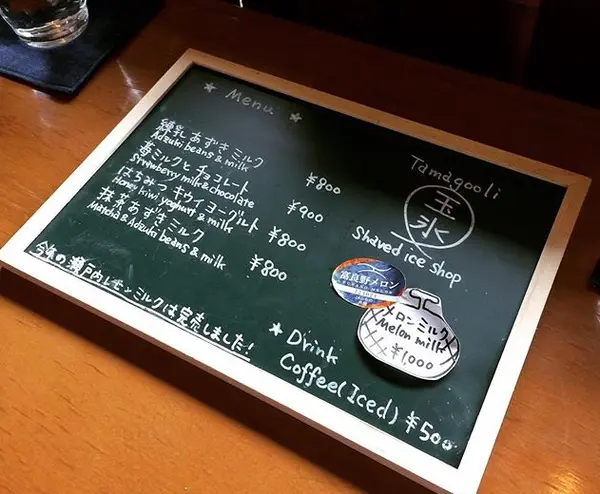 ★ Menu ★
練乳あずきミルク
Adzuki beans & milk ¥800
苺ミルクとチョコレート
Strawberry milk & chocolate ¥900
はちみつキウイヨーグルト
Honey kiwi yoghurt & milk ¥800
抹茶あずきミルク
Matcha & Adzuki beans & milk ¥800
今年の瀬戸内レモンミルクは完売しました!
Tamagooli
玉
氷
Shaved ice shop
富良野メロン
FURANO MELON
メロンミルク
Melon milk
¥1,000
★ Drink
Coffee (Iced) ¥500